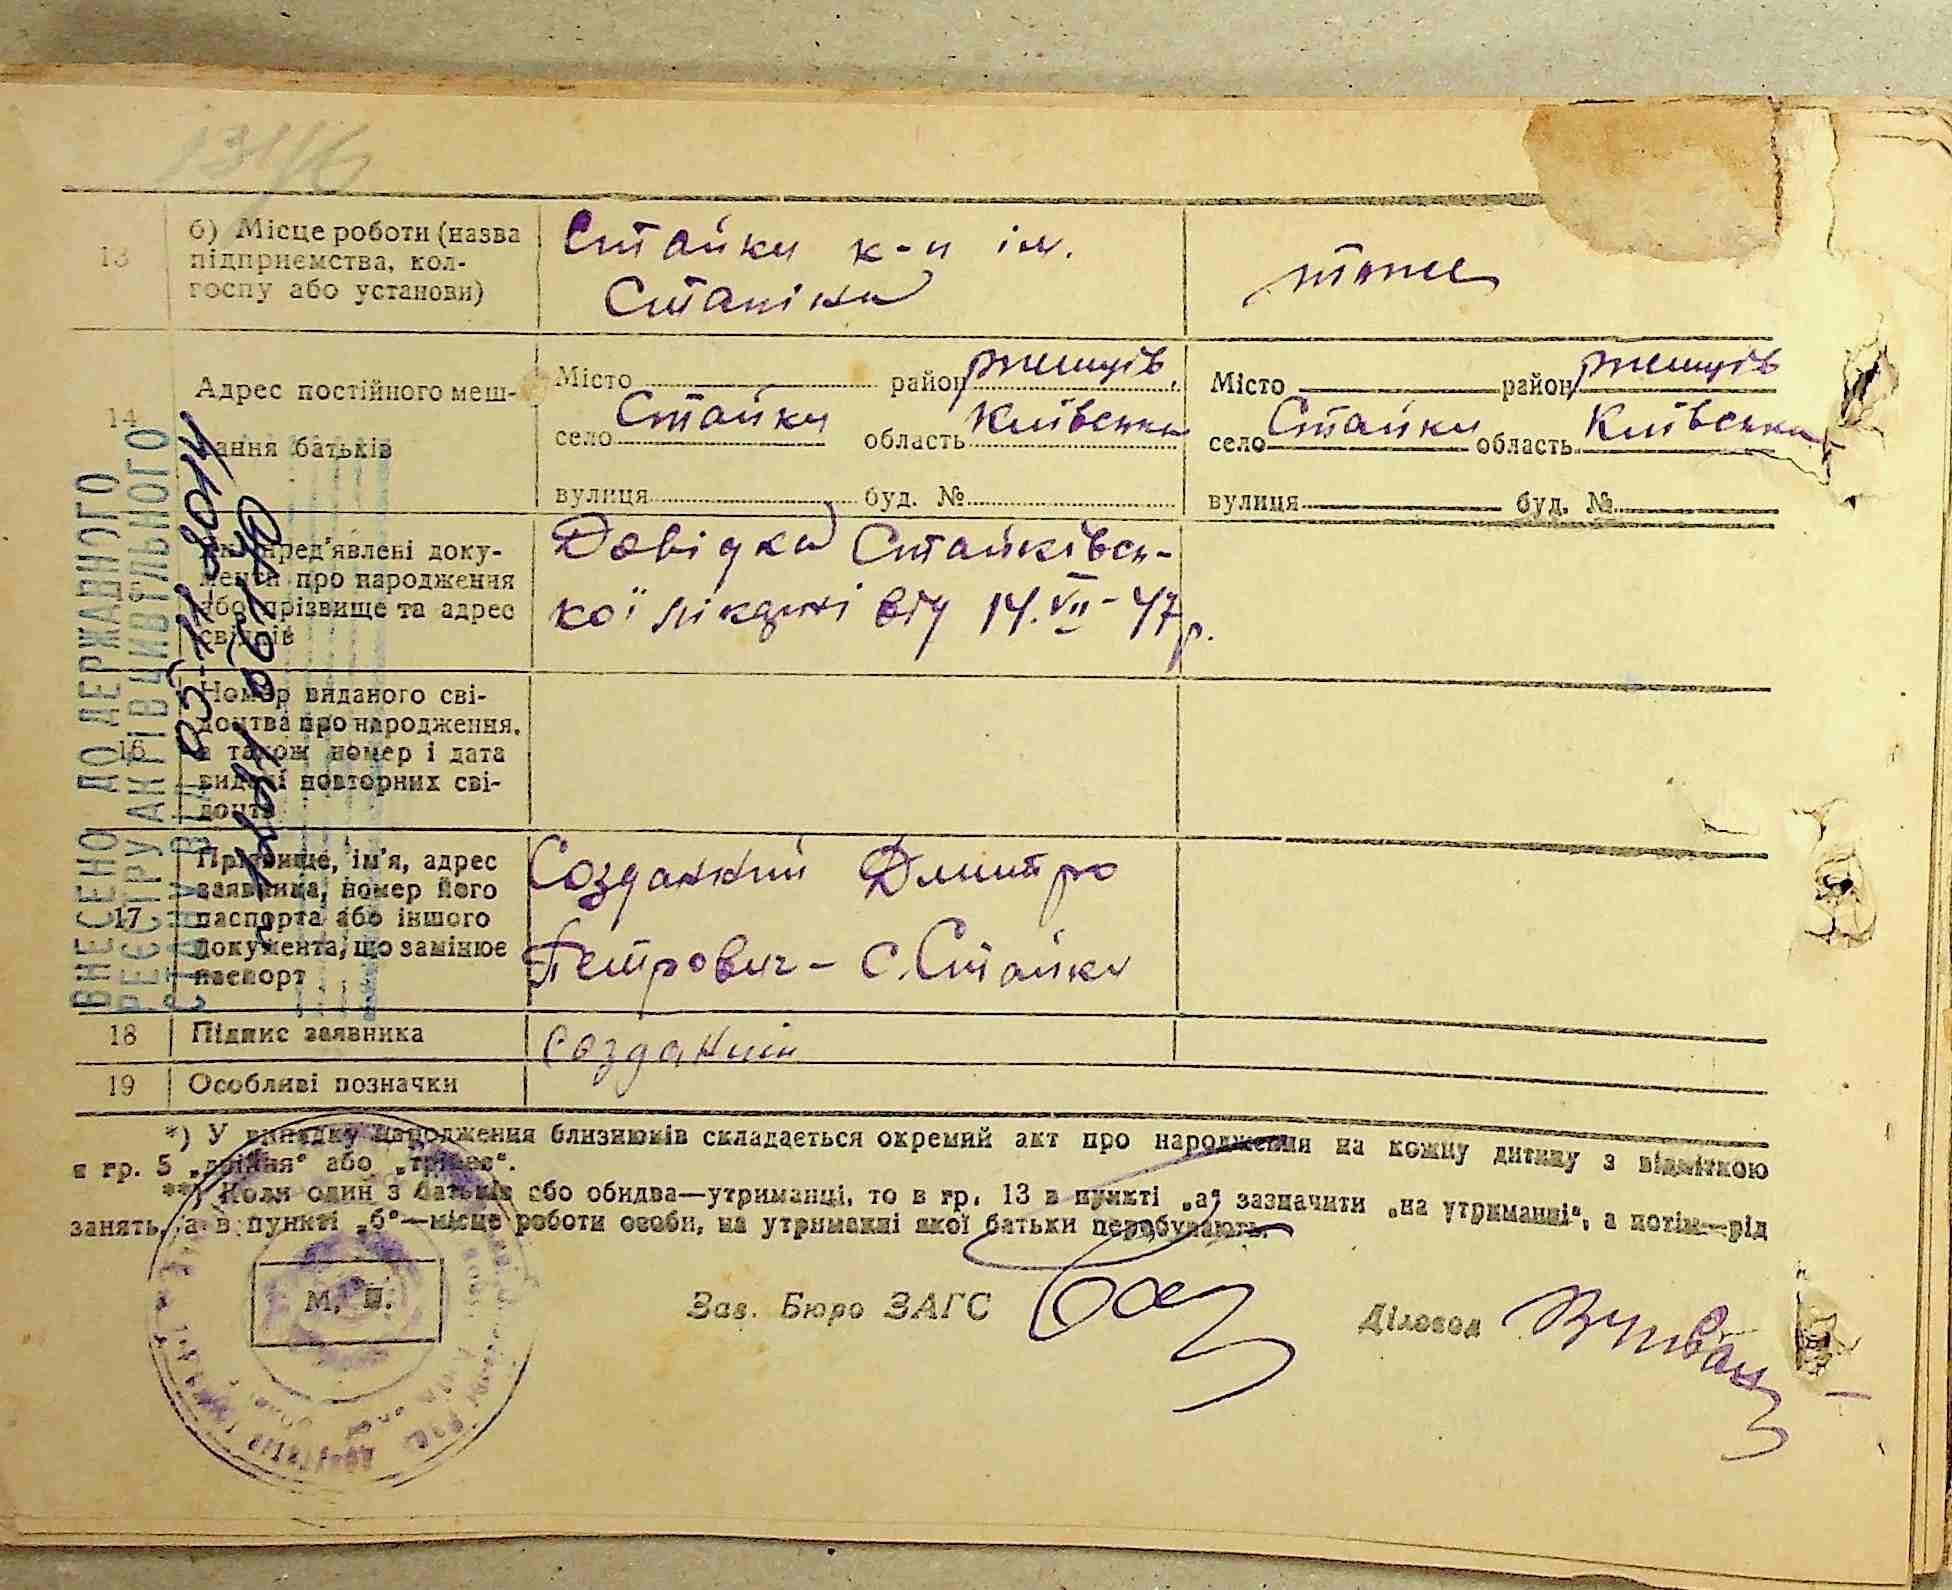 13
б) Місце роботи (назва
підприємства, кол-
госпу або установи)
Стайки к-п ім.
Сталіна
тоже
14
Адрес постійного меш-
кання батьків
Місто район Ржищів.
село Стайки область Київська
вулиця буд. №
Місто район Ржищів
село Стайки область Київська
вулиця буд. №
пред'явлені доку-
менти про народження
або прізвище та адрес
свідків
Довідка Стайківсь-
кої лікарні від 14.VII-47р.
16
Номер виданого сві-
доцтва про народження,
а також номер і дата
видачі повторних сві-
доцтв
17
Прізвище, ім'я, адрес
заявника, номер його
паспорта або іншого
документа, що замінює
паспорт
Созданний Дмитро
Петрович - С. Стайки
18 Підпис заявника
Созданий
19 Особливі позначки
*) У випадку народження близнюків складається окремий акт про народження на кожну дитину з відміткою
в гр. 5 „двійня“ або „трійня“.
**) Коли один з батьків або обидва—утриманці, то в гр. 13 в пункті „а“ зазначити „на утриманні“, а потім—рід
занять, а в пункті „б“—місце роботи особи, на утриманні якої батьки перебувають.
М. П.
Зав. Бюро ЗАГС
Діловод
ВНЕСЕНО ДО ДЕРЖАВНОГО
РЕЄСТРУ АКТІВ ЦИВІЛЬНОГО
СТАНУ ВІД